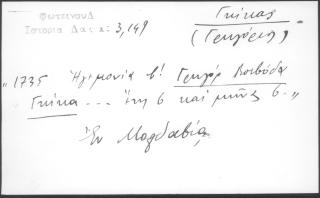 Φωτεινού
Ιστορία Δακ.: 3,149
Γκίκας
(Γρηγόριος)
"1735 Ἡγεμονία β! Γρηγόρ Βοεβόδα
Γκίκα... ἔτη 6 καὶ μῆνας 6."
Ἐν Μολδαβίᾳ